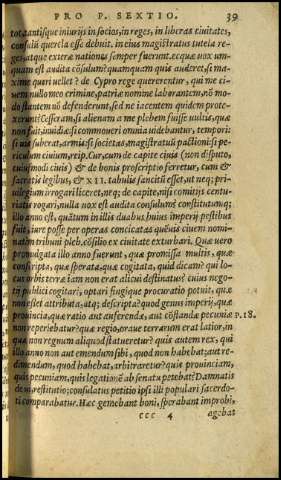 PRO P. SEXTIO. 39
tot, tantisque iniurijs in socios, in reges, in liberas ciuitates,
consulũ querela esse debuit. in eius magistratus tutela re-
ges, atque exteræ nationes semper fuerunt. ecquæ uox un-
quam est audita cõsulum? quamquam quis audiret, si ma-
xime queri uellet? de Cyprio rege quererentur, qui me ci-
uem nullo meo crimine, patriæ nomine laborantem, nõ mo-
do stantem nõ defenderunt, sed ne iacentem quidem prote-
xerunt? Cesseram, si alienam a me plebem fuisse uultis, quæ
non fuit, inuidiæ: si commoueri omnia uidebantur, tempori:
si uis suberat, armis: si societas, magistratuũ pactioni: si pe-
riculum ciuium, reip. Cur, cum de capite ciuis (non disputo,
cuiusmodi ciuis) & de bonis proscriptio ferretur, cum &
sacratis legibus, & XII. tabulis sancitũ esset, ut neq; pri-
uilegium irrogari liceret, neq; de capite, nisi comitijs centu-
riatis rogari, nulla uox est audita consulum? constitutumq;
illo anno est, quãtum in illis duabus huius imperij pestibus
fuit, iure posse per operas concitatas quẽuis ciuem nomi-
natim tribuni pleb. cõsilio ex ciuitate exturbari. Quæ uero
promulgata illo anno fuerunt, quæ promissa multis, quæ
conscripta, quæ sperata, quæ cogitata, quid dicam? qui lo-
cus orbis terræ iam non erat alicui destinatus? cuius nego-
tij publici cogitari, optari fingique procuratio potuit, quæ
non esset attributa, atq; descripta? quod genus imperij, quæ
prouincia, quæ ratio aut auferendæ, aut cõflandæ pecuniæ p. 18.
non reperiebatur? quæ regio, oraue terrarum erat latior, in
qua non regnum aliquod statueretur? quis autem rex, qui
illo anno non aut emendum sibi, quod non habebat, aut re-
dimendum, quod habebat, arbitraretur? quis prouinciam,
quis pecuniam, quis legationẽ ab senatu petebat? Damnatis
de ui restitutio; consulatus petitio ipsi illi populari sacerdo-
ti comparabatur. Hæc gemebant boni, sperabant improbi,
ccc 4 agebat